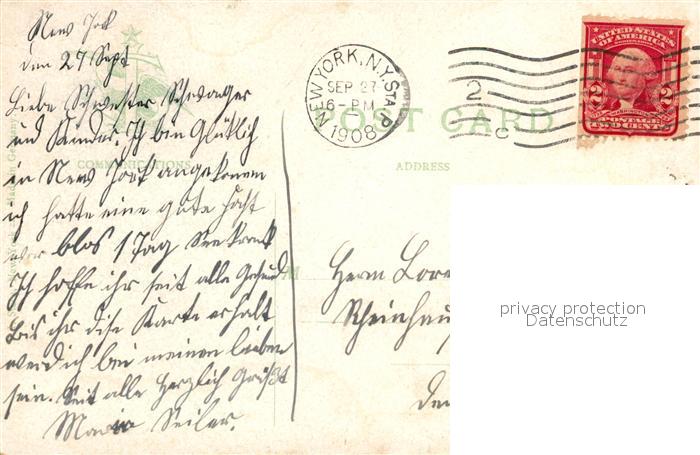 New York
den 27 Sept
Liebe Schwester Schwager
und Kinder. Ich bin Glüklich
in New York angekomen
ich hatte eine gute Fahrt
war blos 1 Tag Seekrank
Ich hoffe ihr seit alle Gesund
Bis ihr dise Karte erhalt
werd ich bei meinen lieben
sein. Seit alle Herzlich Grüßt
Maria Seiler.
COMMUNICATIONS
NEW YORK, N.Y. STA. P
SEP 27
6 - PM
1908
2
C
UNITED STATES
OF AMERICA
2 2
POSTAGE
TWO CENTS
POST CARD
ADDRESS
Herrn
Rheinhau
privacy protection
Datenschutz